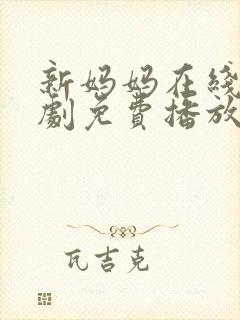 新妈妈在线
劇免費播放
瓦吉克